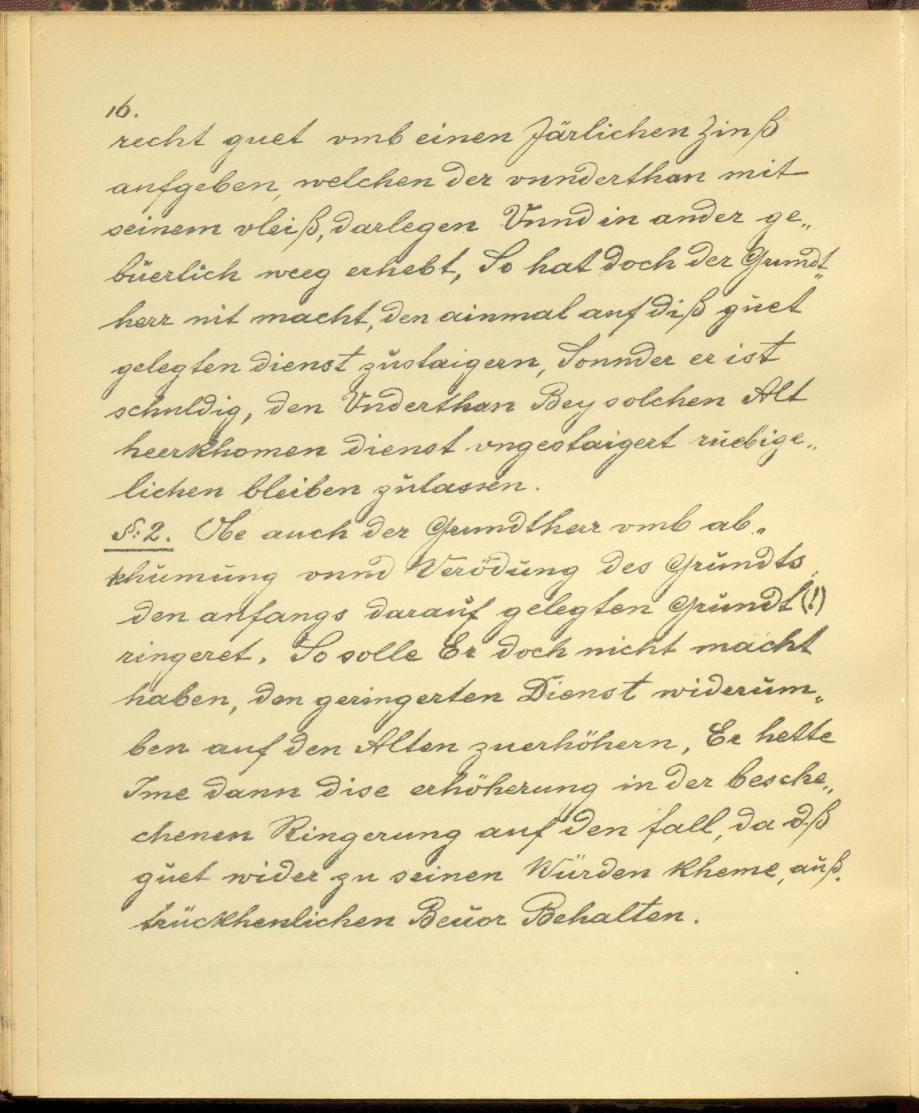 16.
recht guet vmb einen Järlichen Zinß
aufgeben, welchen der vnnderthan mit
seinem vleiß, darlegen Vnnd in ander ge„
büerlich weeg erhebt, So hat doch der Grundt„
herr nit macht, den ainmal auf diß guet
gelegten dienst zústaigern, Sonnder er ist
schuldig, den Vnderthan Bey solchen Alt
heerkhomen dienst vngestaigert rúebige„
lichen bleiben zúlassen.
§:2. Obe auch der Grundtherr vmb ab„
khúmúng vnnd Verödúng des Grúndts
den anfangs daraúf gelegten Grúndt(!)
ringeret. So solle Er doch nicht macht
haben, den geringerten Dienst widerúm„
ben auf den Alten zuerhöhern, Er hette
Ime dann dise erhöherung in der besche„
chenen Ringerung auf den fall, da dß
gúet wider zu seinen Würden kheme, aúß„
trückhenlichen Beúor Behalten.